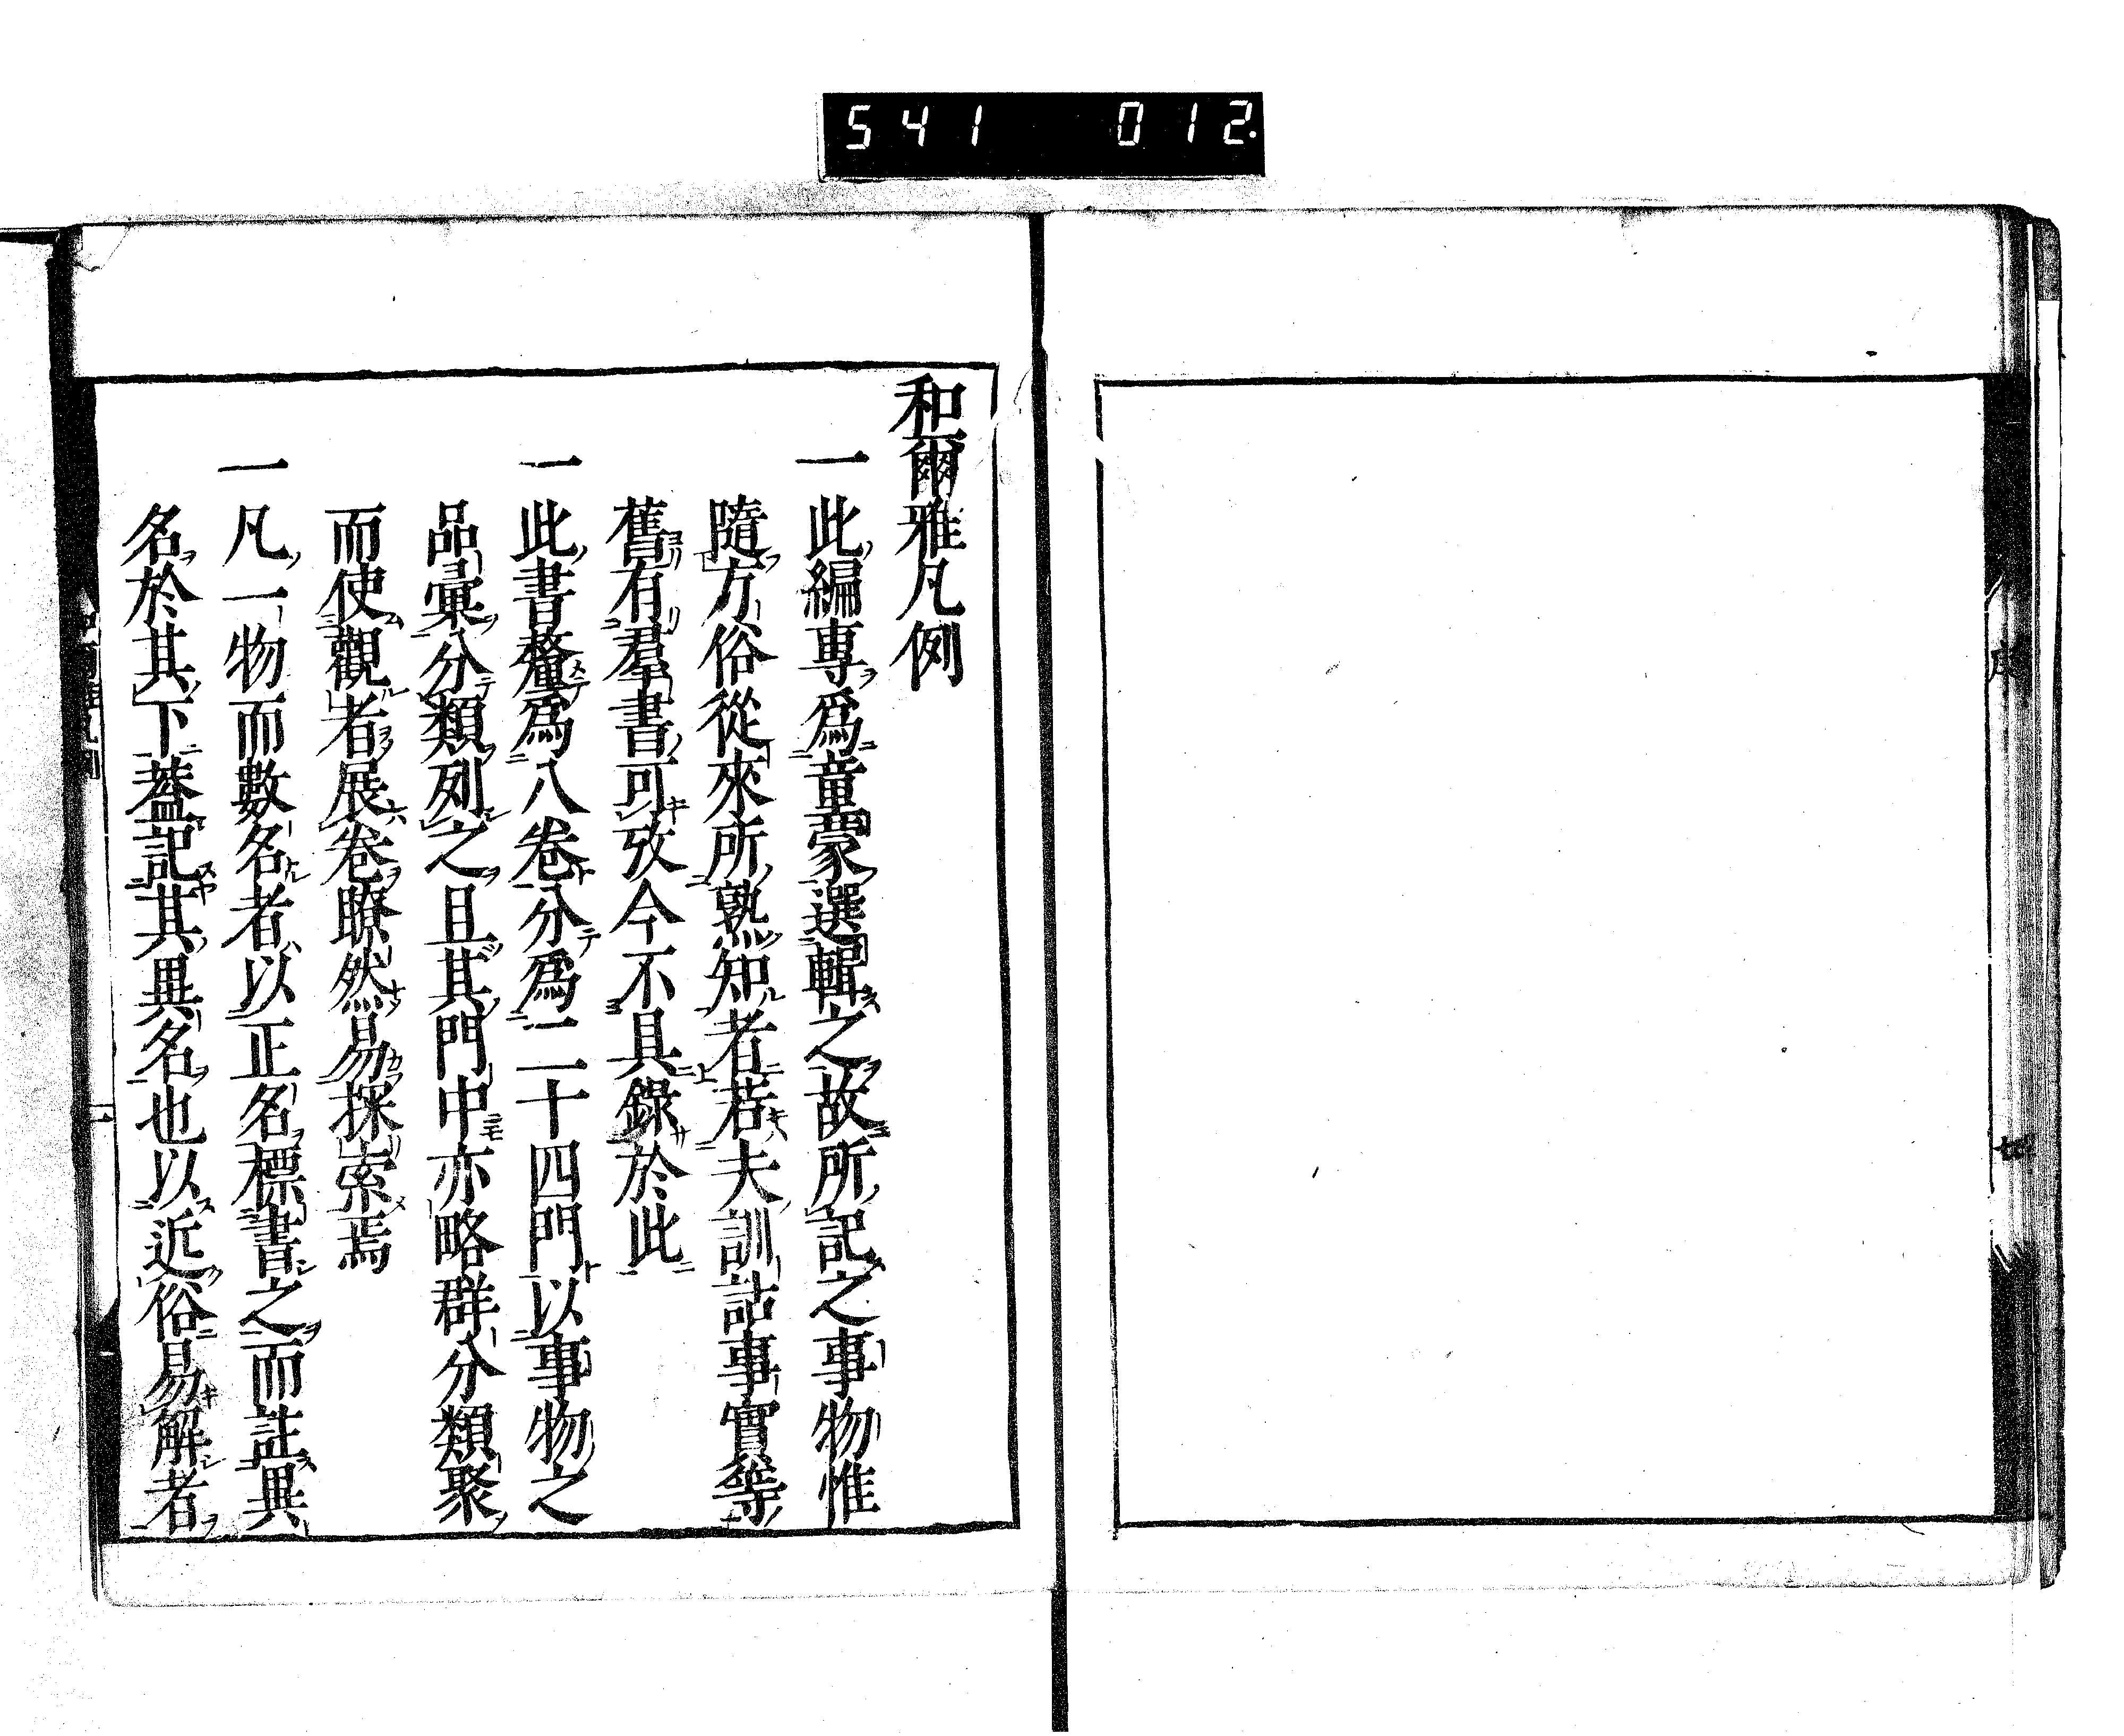 541 012
和爾雅凡例
一此編專爲童蒙選輯之故所記之事物惟
隨方俗從來所熟知者若夫訓詁事實等
舊有羣書可攷今不具錄於此
一此書釐爲八卷分爲二十四門以事物之
品彙分類列之且其門中亦略群分類聚
而使觀者展卷瞭然易探索焉
一凡一物而數名者以正名標書之而註異
名於其下葢記其異名也以近俗易解者